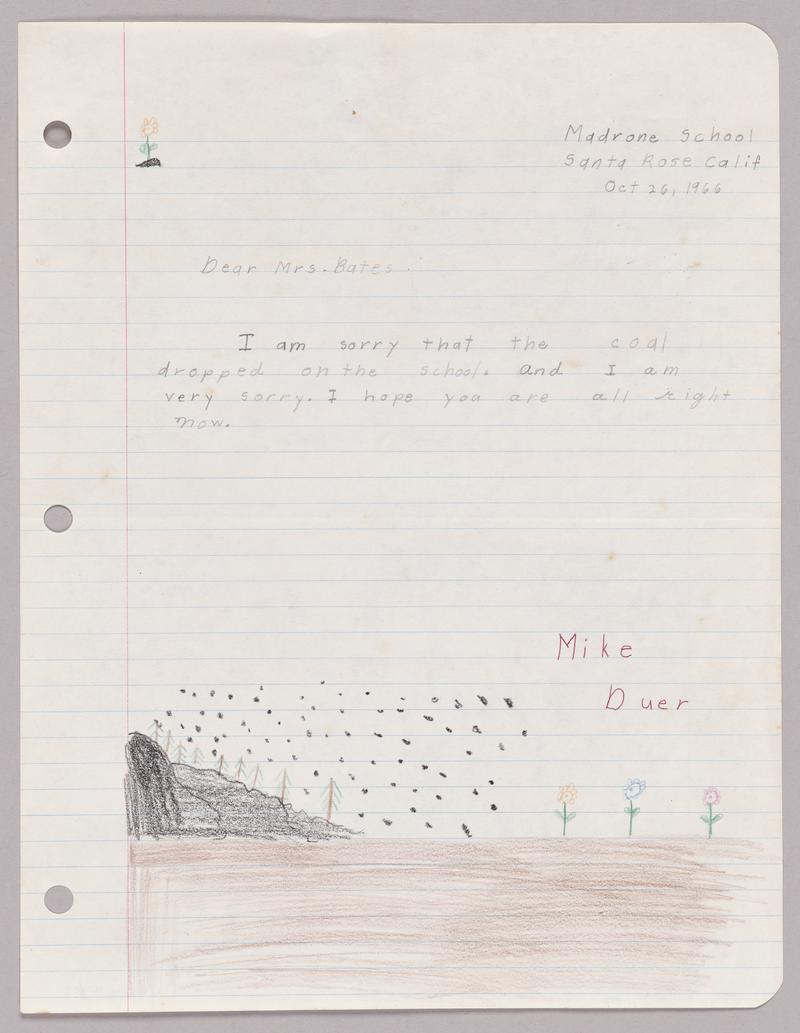 Madrone School
Santa Rose Calif
Oct 26, 1966
Dear Mrs. Bates
I am sorry that the coal
dropped on the school. and I am
very sorry. I hope you are all right
now.
Mike
Duer